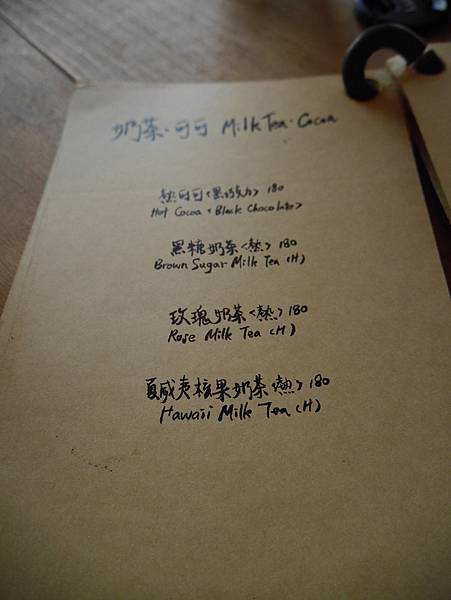 奶茶·可可 Milk Tea·Cocoa
熱可可<黑巧克力> 180
Hot Cocoa <Black Chocolate>
黑糖奶茶<熱> 180
Brown Sugar Milk Tea (H)
玫瑰奶茶<熱> 180
Rose Milk Tea (H)
夏威夷核果奶茶<熱> 180
Hawaii Milk Tea (H)